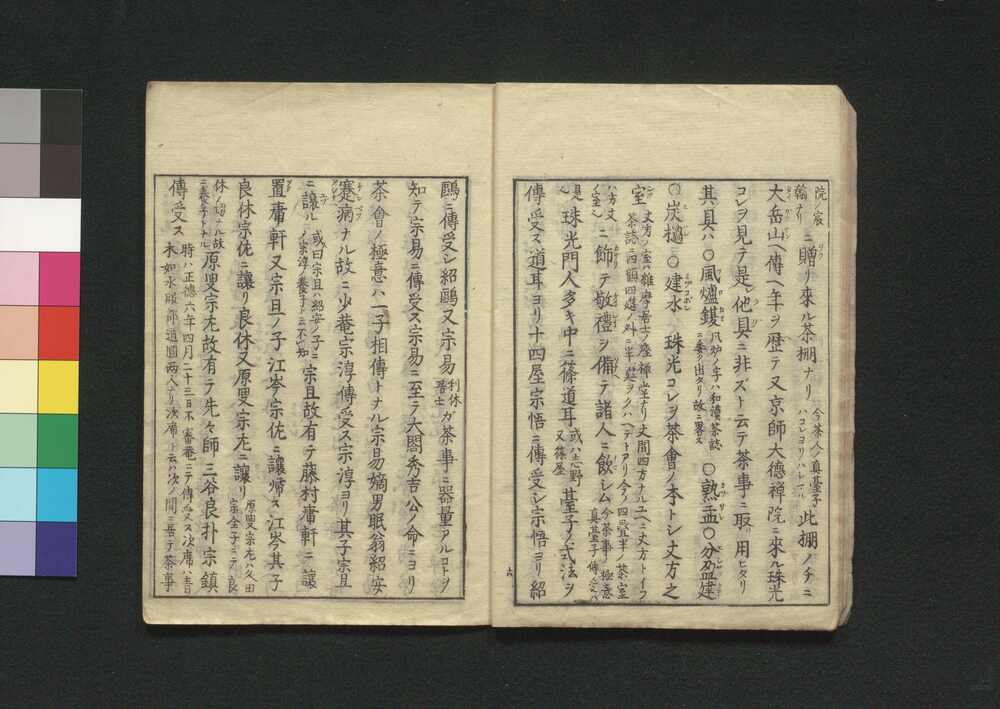 院ノ宸翰ナリニ贈リ來ル茶棚ナリ今茶人ノ真臺子ハコレヨリハシマル此棚ノチニ
大岳山ヘ傳ヘ年ヲ歴テ又京師大德禅院ニ來ル珠光
コレヲ見テ是他具ニ非ズト云テ茶事ニ取リ用ヒタリ
其具ハ〇風爐鑊〇熟盂〇分盈建
〇炭檛ニ〇建水珠光コレヲ茶會ノ本トシ丈方之
室丈方ノ室ハ維摩居士ノ座禅堂ナリ丈間四方ナルユヘニ丈方トイフ茶誌ニ四額四媒ノ外ニ半
ハ方丈ノ室ヘニ飾テ敬禮ヲ備テ諸人ニ飲シム今茶事ノ極意真臺子傳
珠光門人多キ中ニ篠道耳或ハ志野又篠屋臺子ノ式法ヲ
傳受ス道耳ヨリ十四屋宗悟ニ傳受シ宗悟ヨリ紹
六
鷗ニ傳受シ紹鷗又宗易利休居士ガ茶事ニ器量アルコトヲ
知テ宗易ニ傳受ス宗易ニ至テ大閤秀吉公ノ命ニヨリ
茶會ノ極意ハ一子相傳トナル宗易嫡男眠翁紹安
蹇病ナル故ニ少菴宗淳傳受ス宗淳ヨリ其子宗旦
ニ讓ル或曰宗旦ハ紹安ノ子ニノ宗淳ノ養子ト云不知宗旦故有テ藤村庸軒ニ讓
置庸軒又宗旦ノ子江岑宗佐ニ讓帰ス江岑其子
良休宗佐ニ讓リ良休又原叟宗左ニ讓リ原叟宗左ハ久田宗全子ニテ良
休ノ甥ナル故ニ養子トナル原叟宗左故有テ先々師三谷良朴宗鎮
傳受ス時ハ正德六年四月二十三日不審菴ニテ傳受ス次席ハ青木如水服部道圓兩人ナリ次席ト云ハ次ノ間ニ居テ茶事